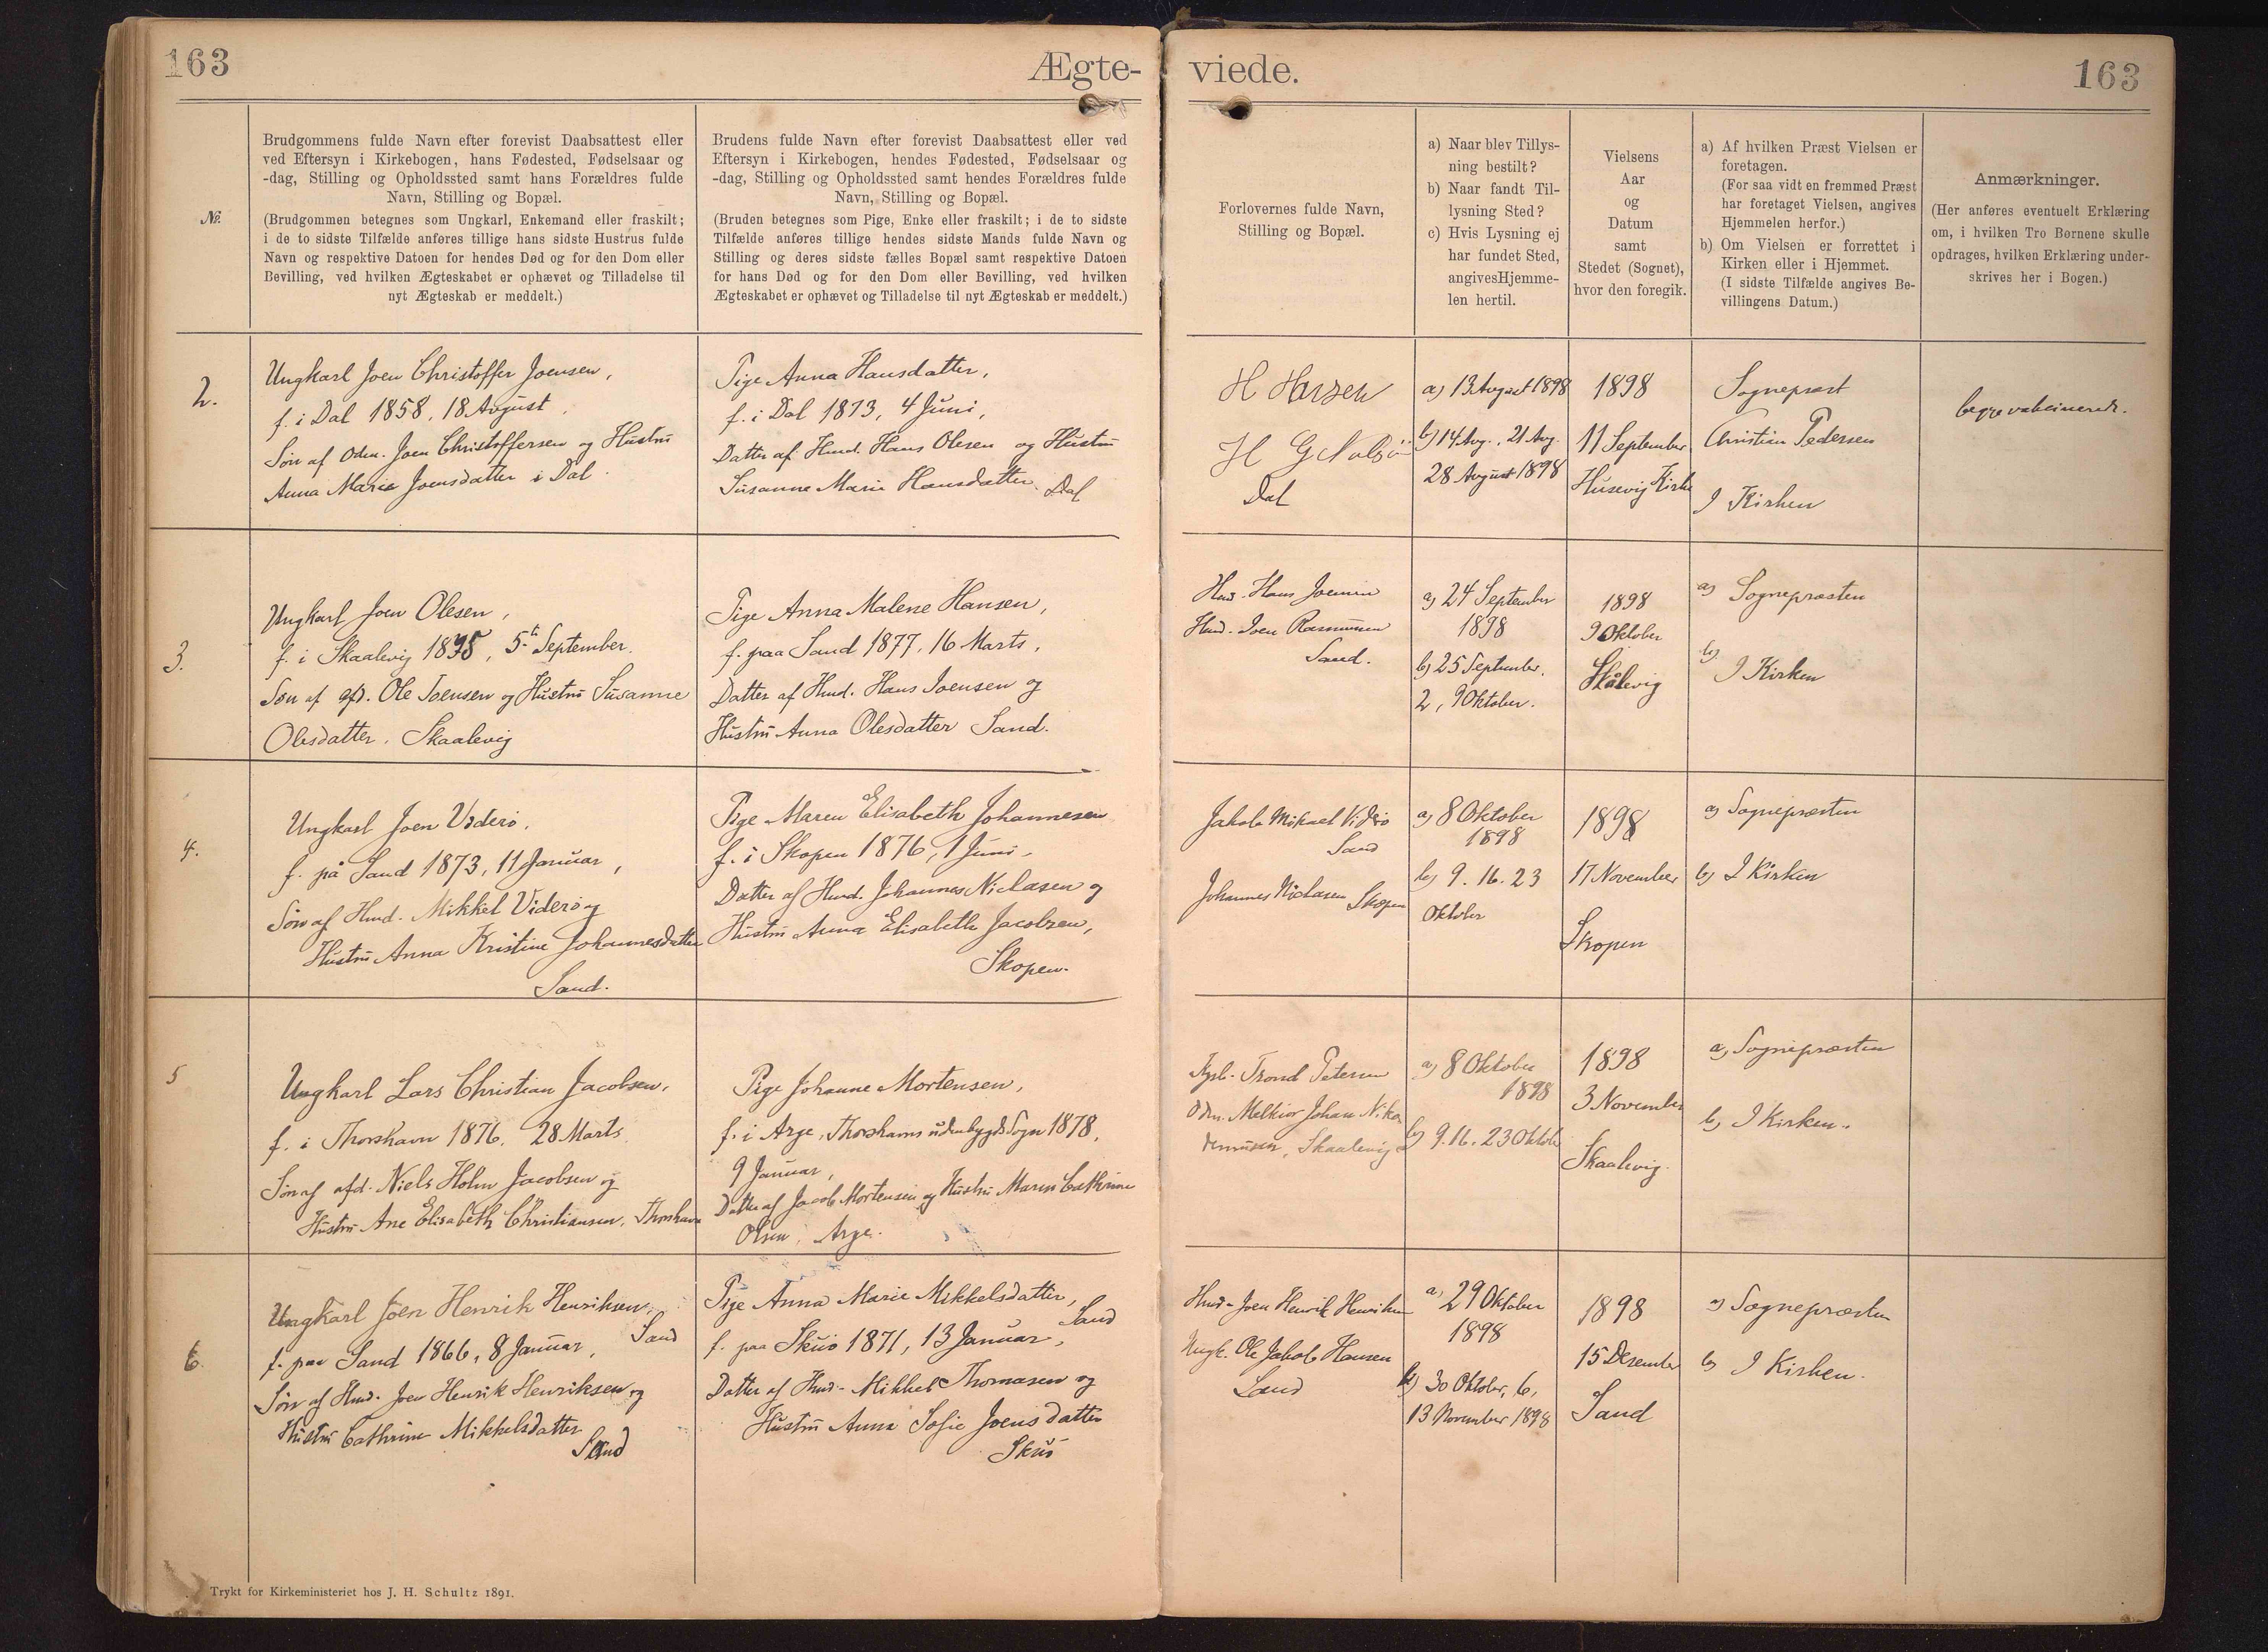 163
Ægte-
viede.
163
№.
Brudgommens fulde Navn efter forevist Daabsattest eller
ved Eftersyn i Kirkebogen, hans Fødested, Fødselsaar og
-dag, Stilling og Opholdssted samt hans Forældres fulde
Navn, Stilling og Bopæl.
(Brudgommen betegnes som Ungkarl, Enkemand eller fraskilt;
i de to sidste Tilfælde anføres tillige hans sidste Hustrus fulde
Navn og respektive Datoen for hendes Død og for den Dom eller
Bevilling, ved hvilken Ægteskabet er ophævet og Tilladelse til
nyt Ægteskab er meddelt.)
Brudens fulde Navn efter forevist Daabsattest eller ved
Eftersyn i Kirkebogen, hendes Fødested, Fødselsaar og
-dag, Stilling og Opholdssted samt hendes Forældres fulde
Navn, Stilling og Bopæl.
(Bruden betegnes som Pige, Enke eller fraskilt; i de to sidste
Tilfælde anføres tillige hendes sidste Mands fulde Navn og
Stilling og deres sidste fælles Bopæl samt respektive Datoen
for hans Død og for den Dom eller Bevilling, ved hvilken
Ægteskabet er ophævet og Tilladelse til nyt Ægteskab er meddelt.)
Forlovernes fulde Navn,
Stilling og Bopæl.
a) Naar blev Tillys-
ning bestilt?
b) Naar fandt Til-
lysning Sted?
c) Hvis Lysning ej
har fundet Sted,
angives Hjemme-
len hertil.
Vielsens
Aar
og
Datum
samt
Stedet (Sognet),
hvor den foregik.
a) Af hvilken Præst Vielsen er
foretagen.
(For saa vidt en fremmed Præst
har foretaget Vielsen, angives
Hjemmelen herfor.)
b) Om Vielsen er forrettet i
Kirken eller i Hjemmet.
(I sidste Tilfælde angives Be-
villingens Datum.)
Anmærkninger.
(Her anføres eventuelt Erklæring
om, i hvilken Tro Børnene skulle
opdrages, hvilken Erklæring under-
skrives her i Bogen.)
2.
Ungkarl Joen Christoffer Joensen,
f. i Dal 1858, 18 August,
Søn af Odm. Joen Christoffersen og Hustru
Anna Marie Joensdatter i Dal.
Pige Anna Hansdatter,
f. i Dal 1873, 4 Juni,
Datter af Husd. Hans Olesen og Hustru
Susanne Marie Hansdatter. Dal
H Hansen
H G
Dal
a) 13 August 1898
b) 14 Aug., 21 Aug.
28 August 1898
1898
11 September
Husevig Kirke
Sognepræst
Christian Pedersen
I Kirken
begge vakcinerede.
3.
Ungkarl Joen Olesen,
f. i Skaalevig 1875, 5te September.
Søn af afd. Ole Joensen og Hustru Susanne
Olesdatter. Skaalevig
Pige Anna Malene Hansen,
f. paa Sand 1877, 16 Marts,
Datter af Husd. Hans Joensen og
Hustru Anna Olesdatter Sand.
Husd. Hans Joensen
Husd. Joen Rasmussen
Sand.
a) 24 September
1898
b) 25 September.
2, 9 Oktober.
1898
9 Oktober
Skålevig
a) Sognepræsten
b) I Kirken
4.
Ungkarl Joen Viderø.
f. på Sand 1873, 11 Januar,
Søn af Husd. Mikkel Viderø og
Hustru Anna Kristine Johannesdatter
Sand.
Pige Maren Elisabeth Johannesen
f. i Skopen 1876, 1 Juni.
Datter af Husd. Johannes Niclasen og
Hustru Anna Elisabeth Jacobsen,
Skopen.
Jakob Mikael Viderø
Sand
Johannes Niclasen Skopen
a) 8 Oktober
1898
b) 9. 16. 23
Oktober
1898
17 November
Skopen
a) Sognepræsten
b) I Kirken
5
Ungkarl Lars Christian Jacobsen,
f. i Thorshavn 1876, 28 Marts
Søn af afd. Niels Holm Jacobsen og
Hustru Ane Elisabeth Christiansen, Thorshavn
Pige Johanne Mortensen,
f. i Arge, Thorshavns udenbygds Sogn 1878,
9 Januar,
Datter af Jacob Mortensen og Hustru Maren Cathrine
Olsen. Arge.
Trond Petersen
Odm. Melkior Johan Niko
demussen, Skaalevig
a) 8 Oktober
1898
b) 9. 16. 23 Oktobr
1898
3 November
Skaalevig.
a) Sognepræsten
b) I Kirken.
6.
Ungkarl Joen Henrik Henriksen,
Sand
f. paa Sand 1866, 8 Januar,
Søn af Husd. Joen Henrik Henriksen og
Hustru Cathrine Mikkelsdatter
Sand
Pige Anna Marie Mikkelsdatter,
Sand
f. paa Skuø 1871, 13 Januar,
Datter af Husd. Mikkel Thomasen og
Hustru Anna Sofie Joensdatter
Skuø
Husd. Joen Henrik Henriksen
Ungk. Ole Jakob Hansen
Sand
a) 29 Oktober
1898
b) 30 Oktober, 6,
13 November 1898
1898
15 Desember
Sand
a) Sognepræsten
b) I Kirken.
Trykt for Kirkeministeriet hos J. H. Schultz 1891.